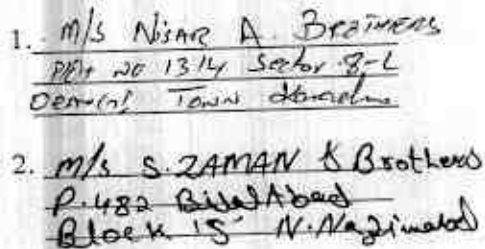 1. M/s Nisar A. Brothers
Plot no 1314 Sector 8-L
Town
2. M/s S. ZAMAN & Brothers
P.482 Bilal Abad
Block 'S' N.Nazimabad